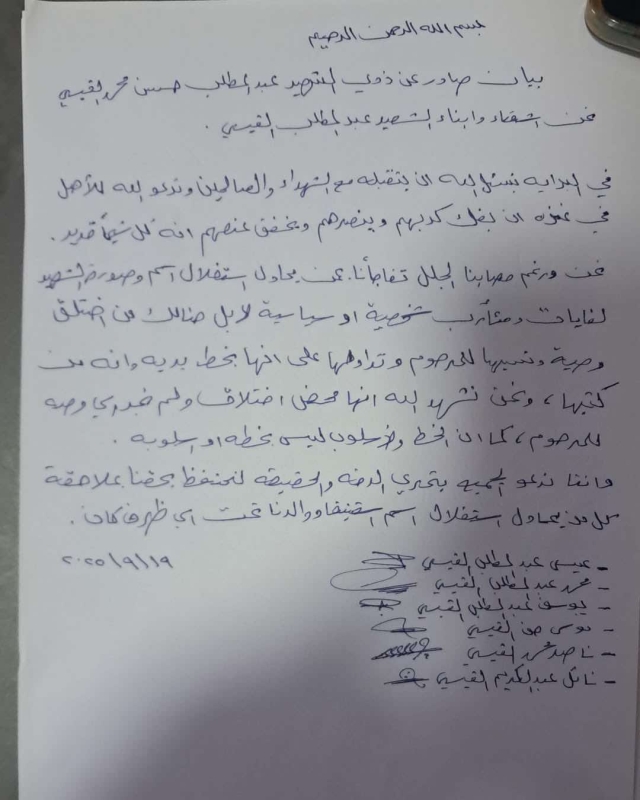 بسم الله الرحمن الرحيم
بيان صادر عن ذوي الشهيد عبد المطلب حسن محمد القيسي
نحن اشقاء وابناء الشهيد عبد المطلب القيسي .
في البدايه نسئل الله ان يتقبله مع الشهداء والصالحين وندعو الله للأهل
في غزه ان يفك كربهم وينصرهم ويخفف عنهم انه كل شيئاً قدير .
نحن ورغم مصابنا الجلل تفاجأنا بمن يحاول استغلال اسم وصورة الشهيد
لغايات ومئارب شخصية او سياسية لا بل هنالك من اختلق
وصية ونسبها للمرحوم وتداولها على انها بخط يديه وانه من
كتبها ، ونحن نشهد الله انها محض اختلاق ولم نجد اي وصه
للمرحوم ، كما ان الخط والاسلوب ليس بخطه او اسلوبه .
واننا ندعو الجميع بتحري الدقه والحقيقه لنحتفظ بحقنا بملاحقة
كل من يحاول استغلال اسم شقيقنا ووالدنا تحت اي ظرف كان .
٢٠٢٥/٩/١٩
- عيسى عبد المطلب القيسي
- محمد عبد المطلب القيسي
- يوسف عبد المطلب القيسي
- موسى حسن القيسي
- ناصر محمد القيسي
- نائل عبد الكريم القيسي